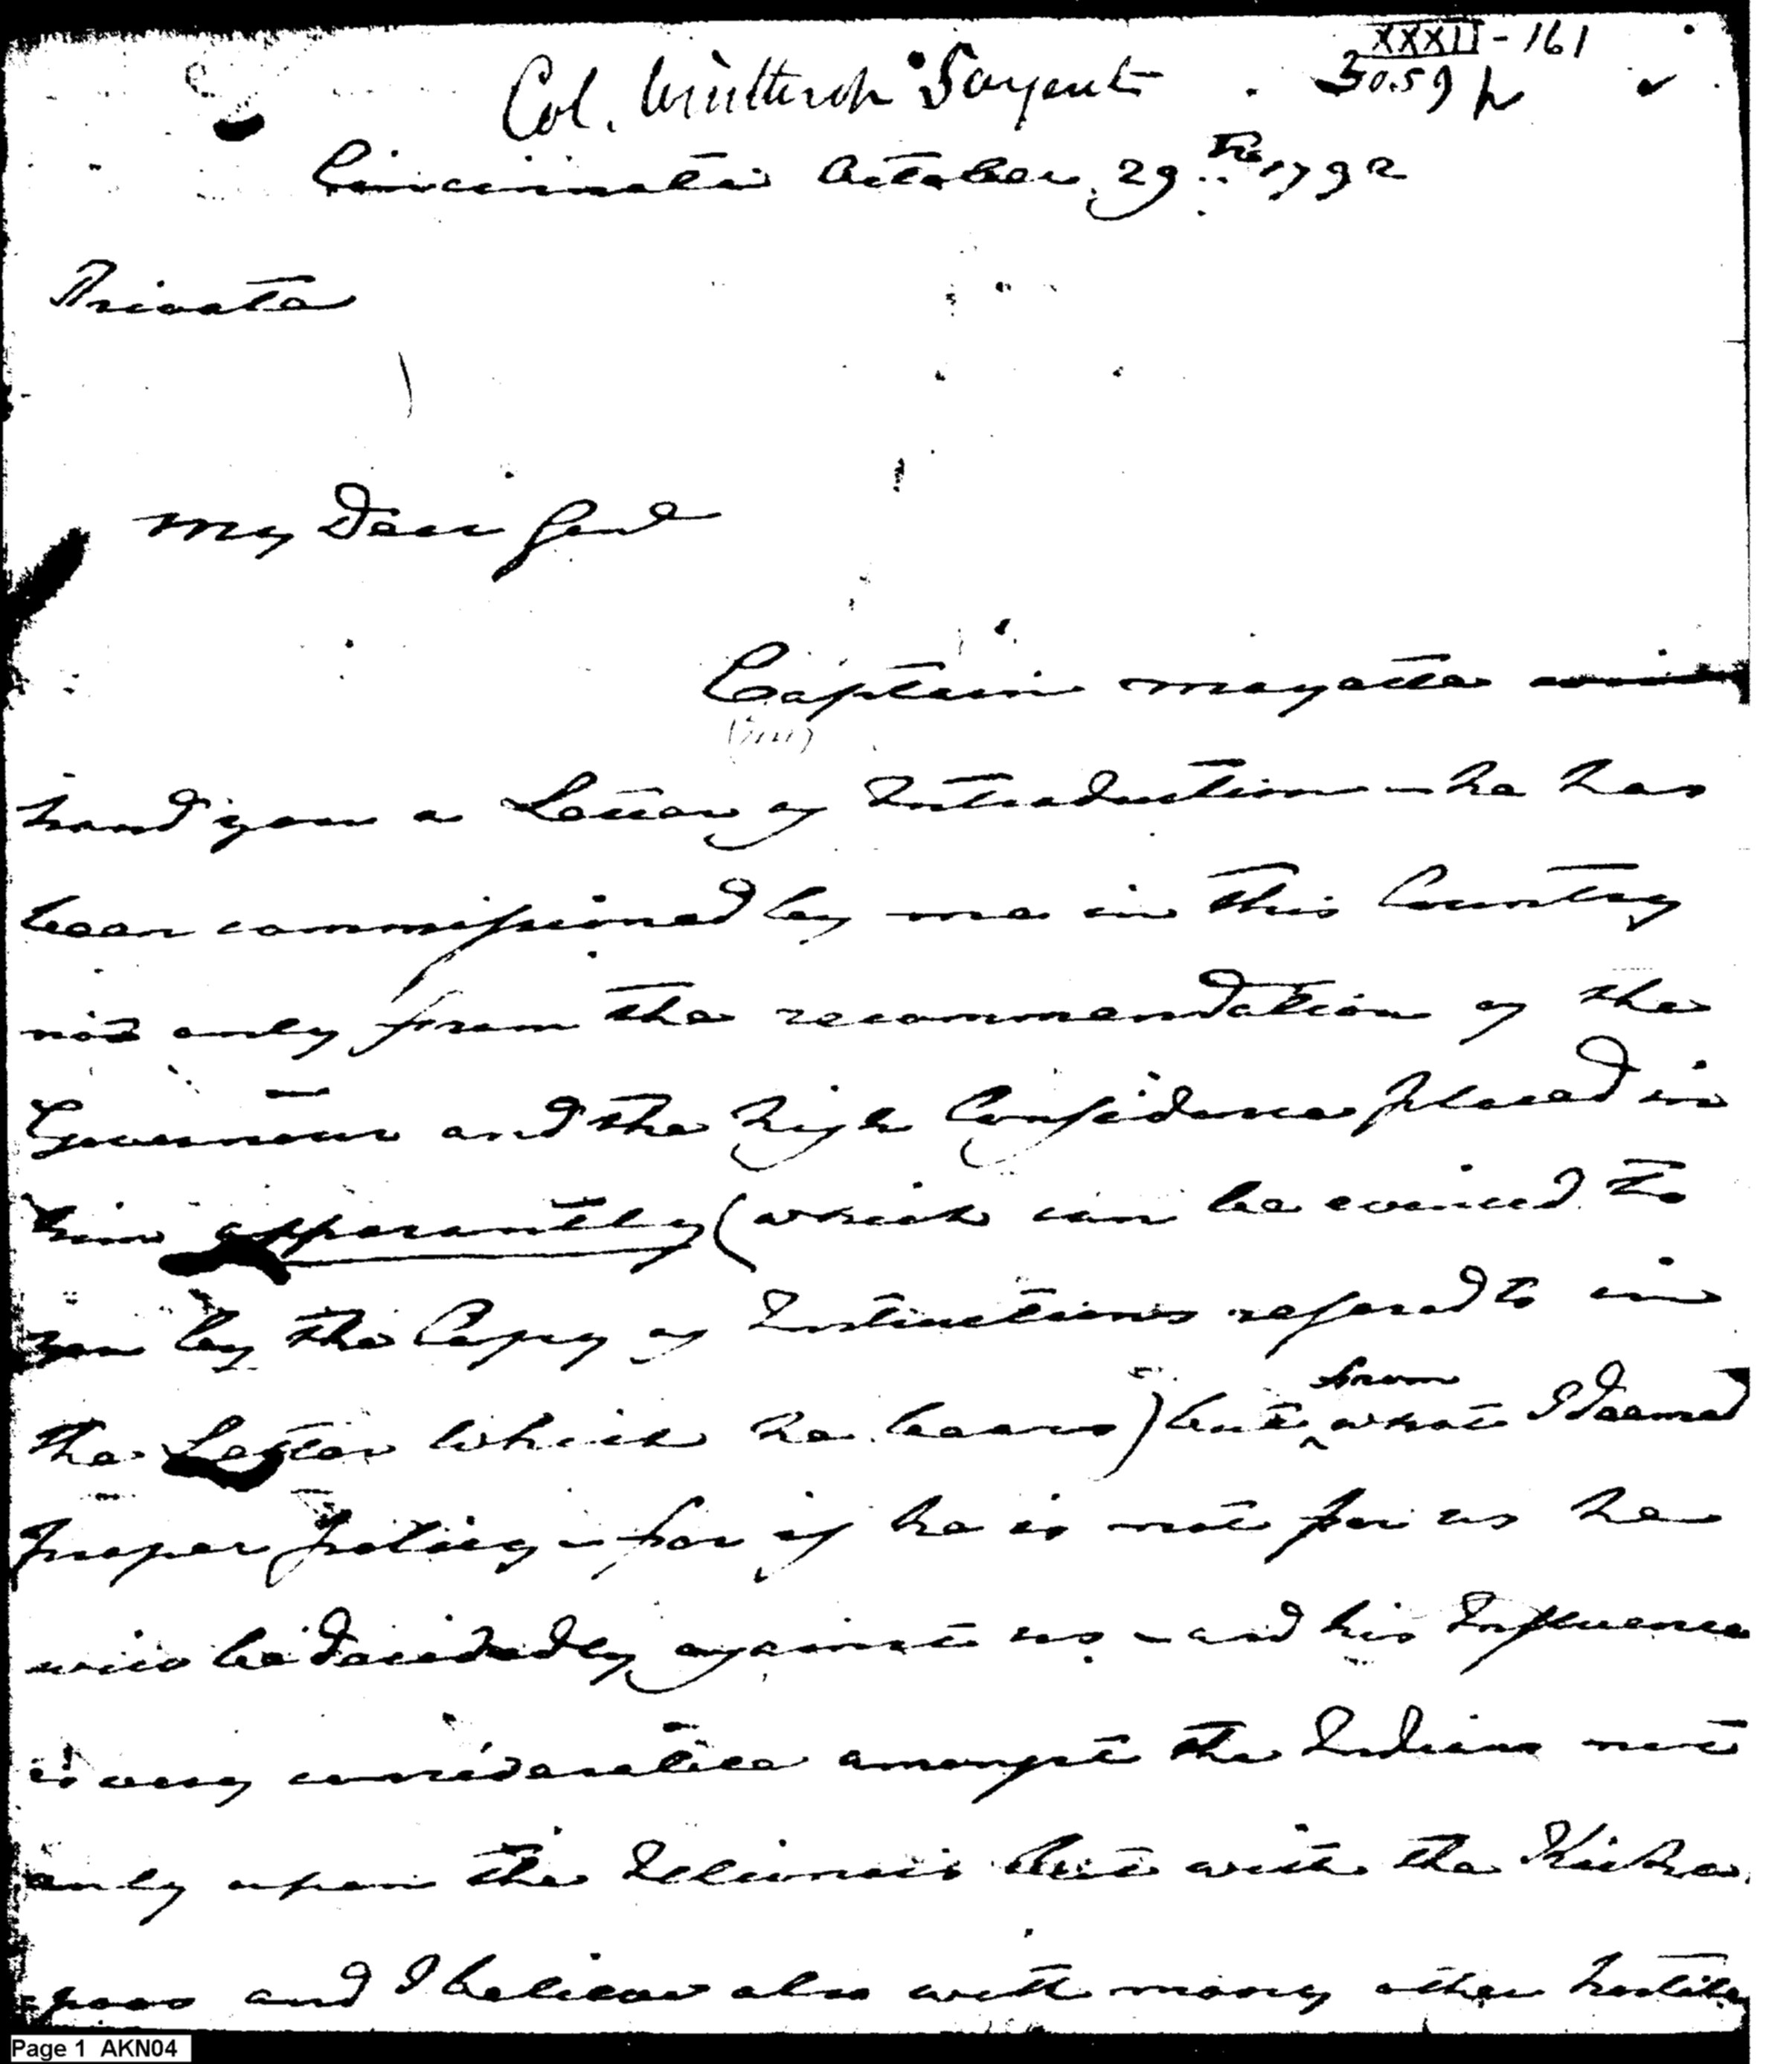 XXXII - 161
Col. Winthrop Sargent
Cincinnati October 29th 1792
Private
My Dear Genl
Captain mayatte will
hand you a Letter of Introduction - he has
been commissioned by me in this Country
not only from the recommendation of the
Governour and the high Confidence placed in
him apparently (which can be evinced to
you by the Copy of Instructions refered to in
the Letter which he bears) but from what I deemed
proper policy - for if he is not for us he
will be decidedly against us - and his Influence
is very considerable amongst the Indians not
only upon the Illionois but with the Kicka
poos and I believe also with many other hostile
Page 1 AKN04